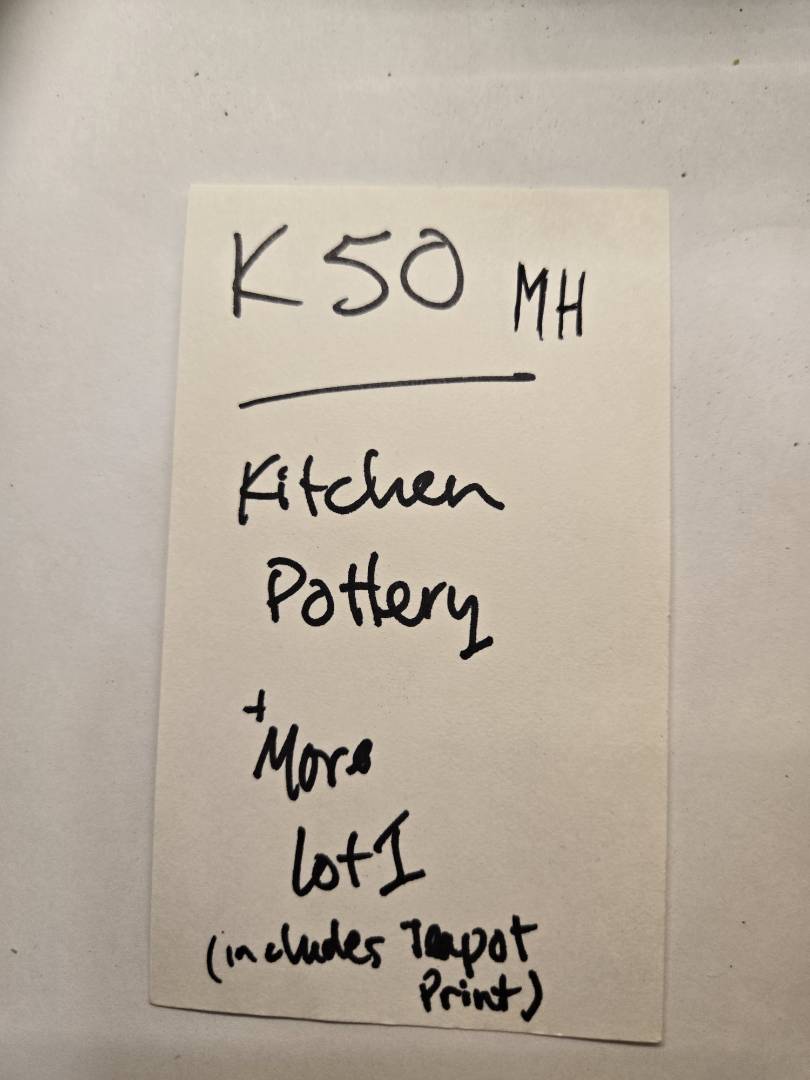 K50 MH
Kitchen
Pottery
+
More
Lot I
(includes Teapot
Print)